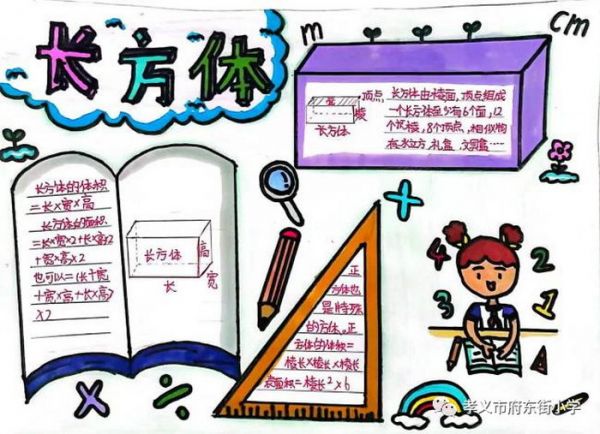 长方体
m
cm
顶点
宽
棱
长方体
长方体由棱面,顶点组成
一个长方体至少有6个面,12
个长棱,8个顶点,相似物
有水立方,礼盒,文具盒……
长方体的体积
=长×宽×高
长方体的面积
=长×宽×2+长×高×2
+宽×高×2
也可以=(长×宽
+宽×高+长×高)
×2
长方体
高
宽
长
正
方体也
是特殊
的方体。正
方体的体积=
棱长×棱长×棱长
表面积=棱长²×6
+
4
3
2
1
×
÷
孝义市府东街小学